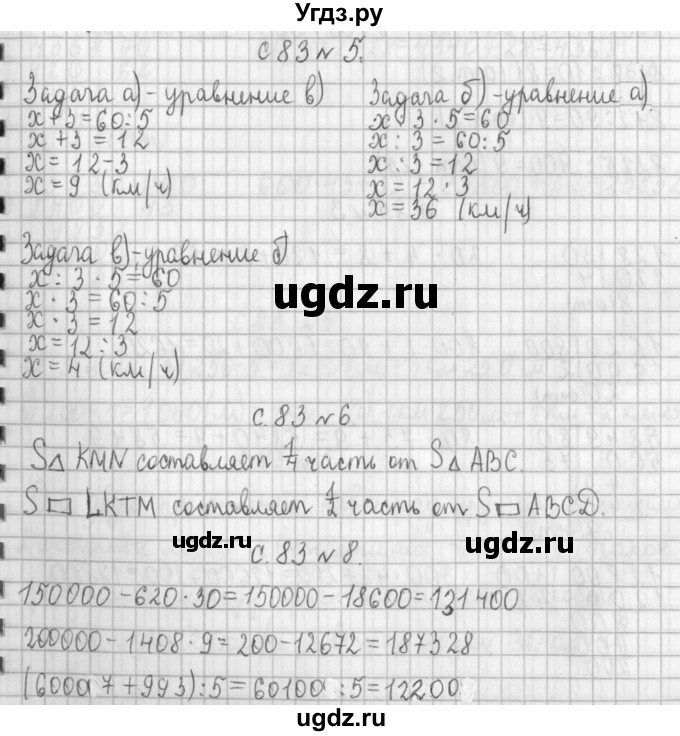 Угдз.ру
с 83 №5.
Задача а) - уравнение в)
x+3=60:5
x+3=12
x=12-3
x=9 (км/ч)
Задача б) - уравнение а).
x:3·5=60
x:3=60:5
x:3=12
x=12·3
x=36 (км/ч)
Задача в) - уравнение б)
x:3·5=60
x·3=60:5
x·3=12
x=12:3
x=4 (км/ч)
ugdz.ru
с.83 №6
S△ KMN составляет 1/4 часть от S△ ABC.
S▭ LKTM составляет 1/2 часть от S▭ ABCD.
ugdz.ru
ugdz.ru
с.83 №8.
150000-620·30=150000-18600=131400
200000-1408·9=200-12672=187328
(60007+993):5=60100:5=12200
ugdz.ru